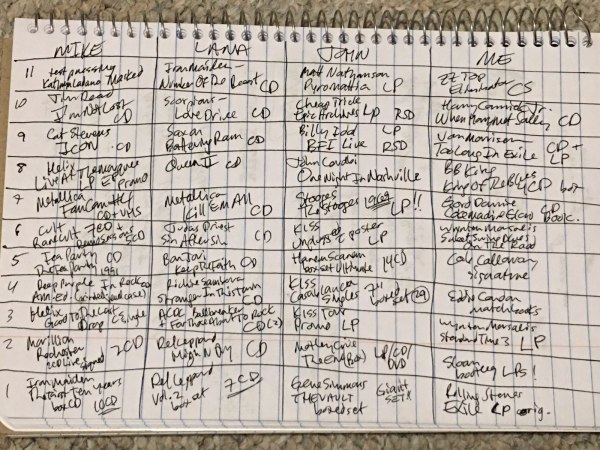 MIKE LANA JOHN ME
11 test pressing Iron Maiden - Matt Nathanson ZZ Top
Masked Number Of The Beast CD Pyromattia LP Eliminator CS
10 Scorpions - Cheap Trick Harry Connick Jr.
I'm Not Lost CD Love Drive CD Epic Archives LP RSD When Harry Met Sally CD
9 Cat Stevens Saxon Billy Idol LP Van Morrison CD +
ICON CD Battering Ram CD BFI Live RSD Too Long In Exile LP
8 Helix Queen II CD John Condon BB King
Live At The Marquee LP EP Promo One Night In Nashville King Of The Blues CD box
7 Metallica Metallica Stooges LP!!
Fan Can #4 CD + VHS Kill Em All CD The Stooges 1969 book
6 Cult 7CD + Judas Priest KISS Wynton Marsalis
Rare Cult 5CD Sin After Sin CD Unplugged + poster LP On The Rago
5 Tea Party CD Bon Jovi 14CD Cab Calloway
The Tea Party 1991 Keep The Faith CD box set Ultimate signature
4 Deep Purple In Rock CD Richie Sambora KISS 7" Eddie Condon
Anni Ed. Stranger In This Town CD Casablanca Singles boxed set (29) matchbooks
3 Helix AC/DC Ballbreaker KISS Tour Wynton Marsalis
+ For Those About To Rock CD (2) Promo LP Standard Time 3 LP
2 Marillion 2CD Def Leppard Motley Crue LP/CD/DVD Sloan
Rochester signed High N Dry CD The End (Box) bootleg LPs!
1 Iron Maiden Def Leppard 7CD Gene Simmons Giant Rolling Stones
The First Ten Years vol. 2 THE VAULT SET!! Exile LP orig.
box CD 10CD box set boxed set